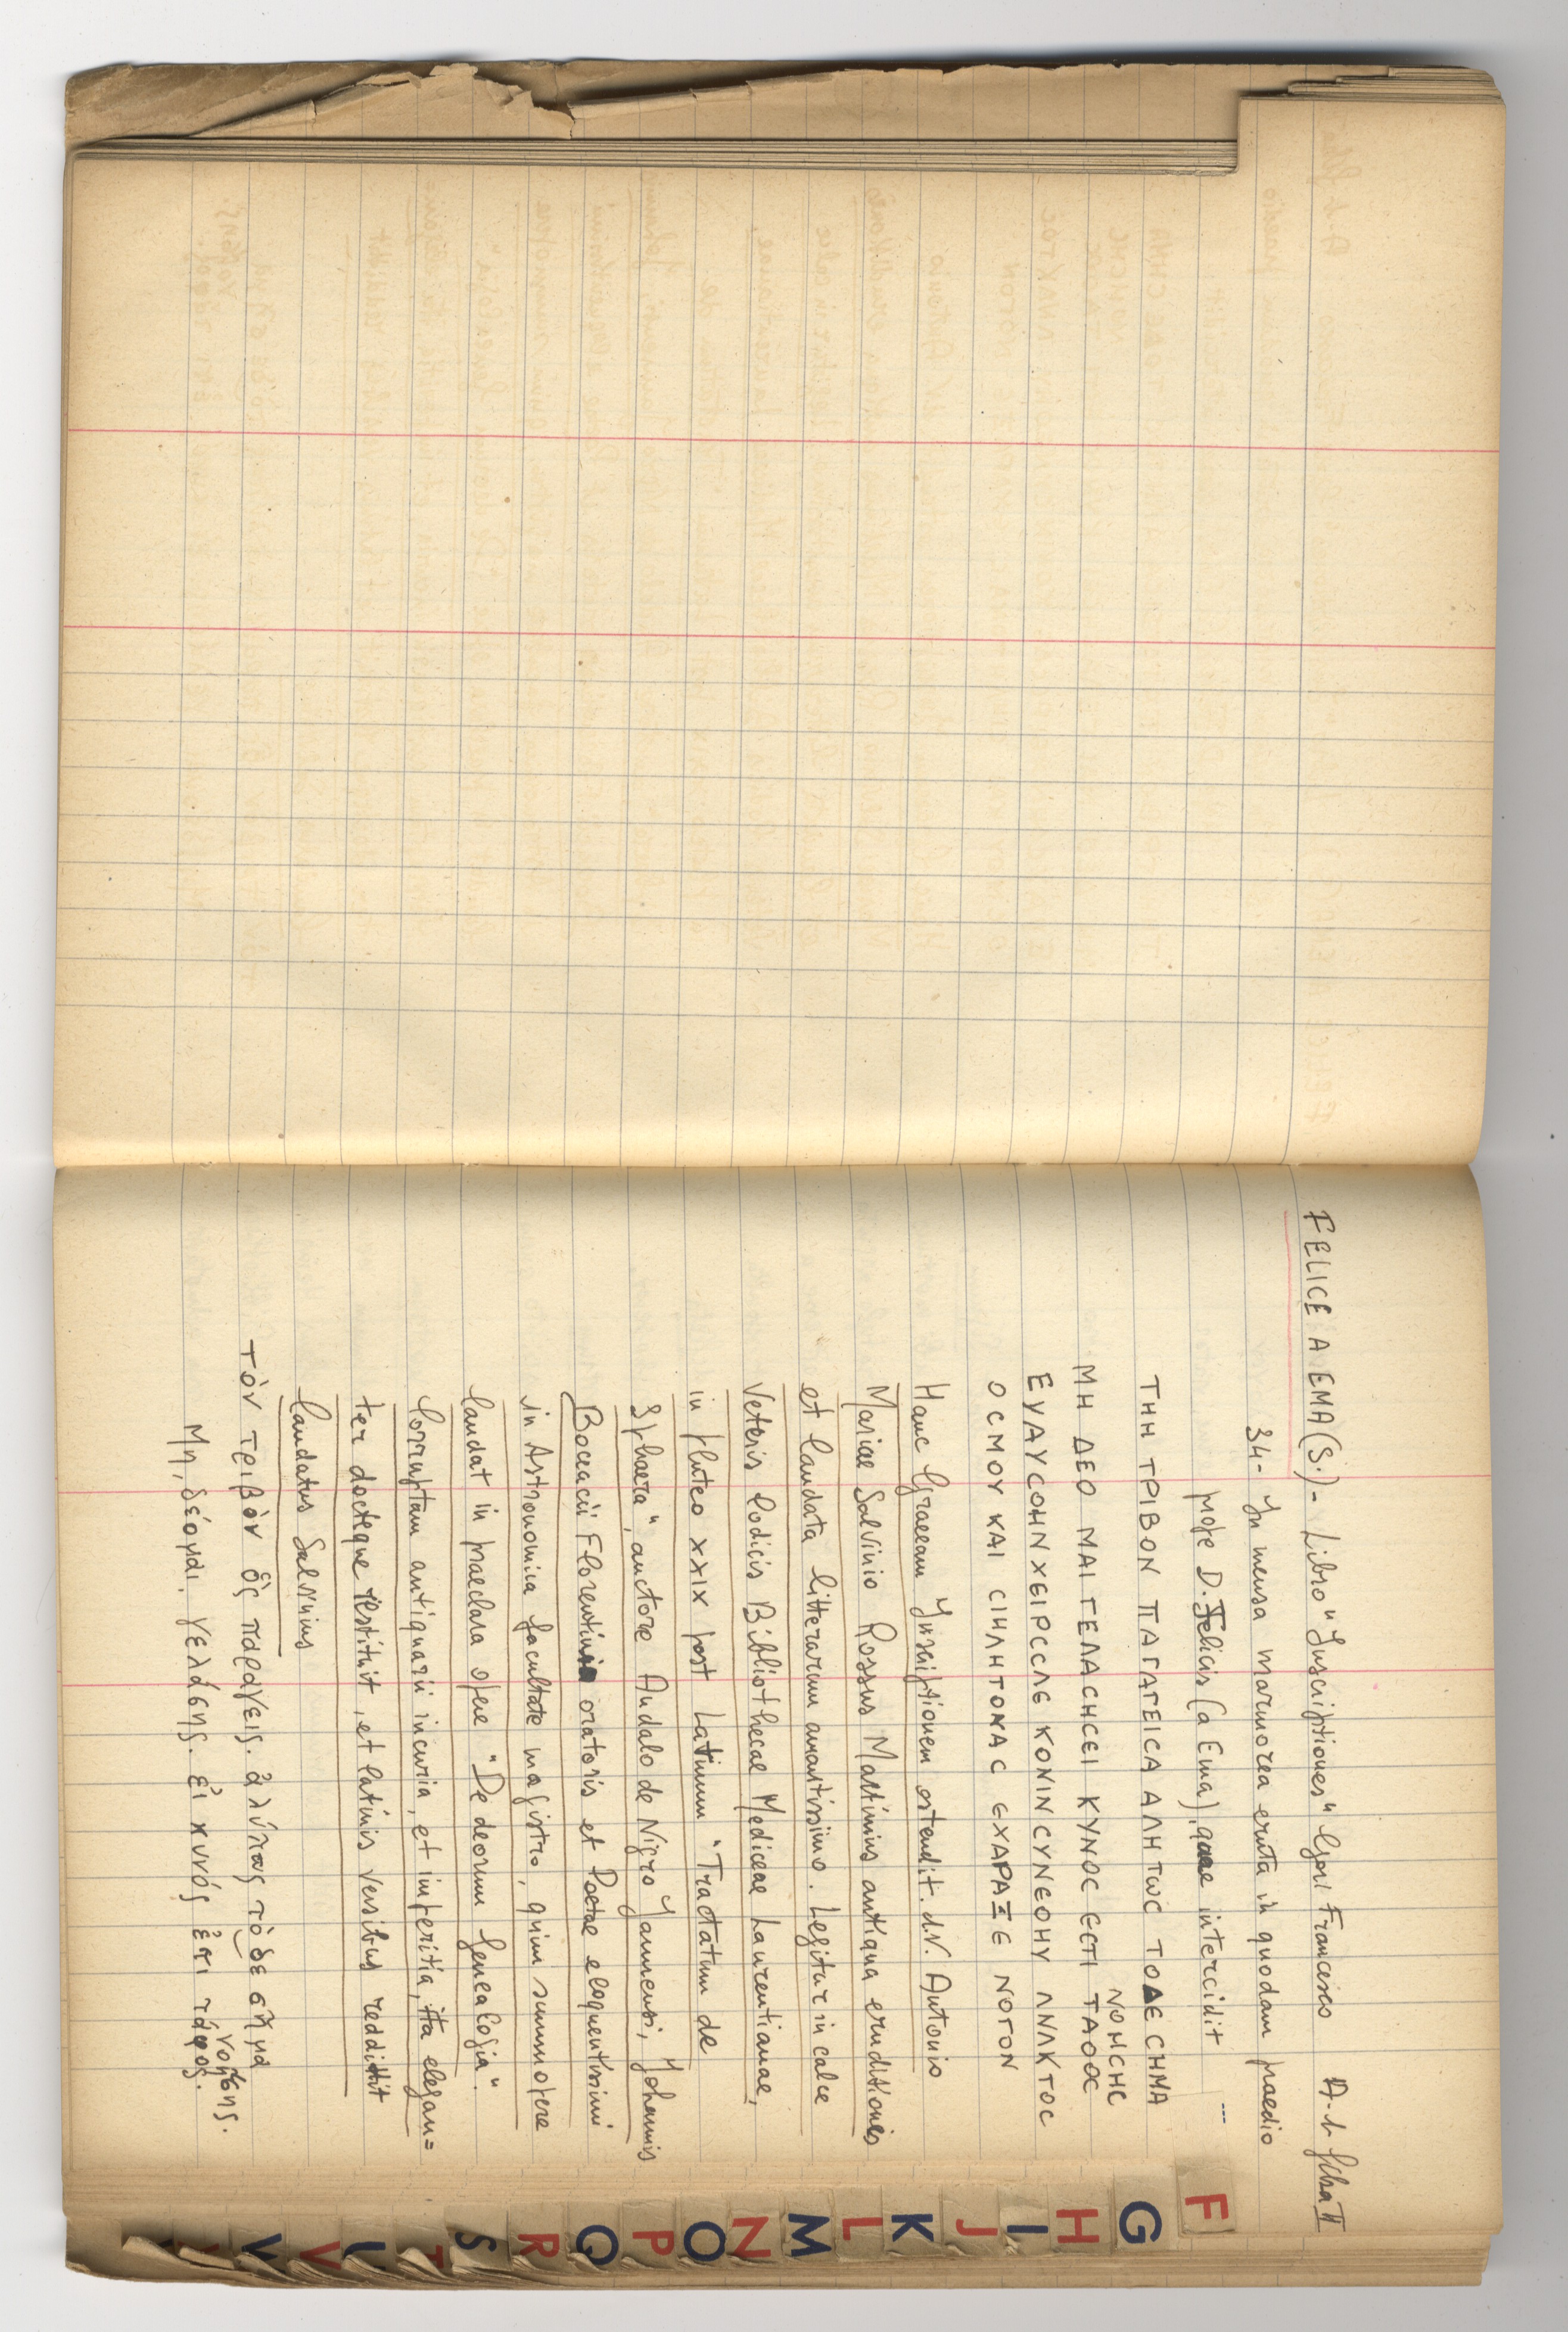 FELICE A EMA (S.) - Libro "Inscriptiones" Gori Francesco A-b fila II
34- In mensa marmorea eruta in quodam praedio
prope D. Felicis (a Ema), quae intercidit ...
ΤΗΗ ΤΡΙΒΟΝ ΠΑΓΑΓΕΙCΑ ΑΛΗΤωC ΤΟΔΕ CΗΜΑ
ΝΟΗCΗC
ΜΗ ΔΕΟ ΜΑΙ ΓΕΛΑCΗCΕΙ ΚΥΝΟC ЄCΤΙ ΤΑΟΟC
ΕΥΛΑΥCΟΗΝ ΧΕΙΡCCΛΕ ΚΟΝΙΝ CΥΝΕΟΗΥ ΛΝΛΚΤΟC
ΟC ΜΟΥ ΚΑΙ CΙΗΛΗΤΟΝΑC ЄΧΑΡΑΞЄ ΝΟΓΟΝ
Hanc Graecam Inscriptionem ostendit. d.V. Antonio
Mariae Salvinio Rossus Martinius antiqua eruditiones
et laudata litterarum amantissimo. Legitur in calce
Veteris Codicis Bibliothecae Mediceae Laurentianae,
in pluteo XXIX post Latinum "Tractatum de
Sphaera", auctore Andalo de Nigro Januensi, Johannis
Boccacii Florentini oratoris et Poetae eloquentissimi
in Astronomica facultate magistro, quim summopere
laudat in praeclara opere "De deorum Genealogia".
Corruptam antiquarii incuria, et imperitia, ita elegan=
ter docteque restituit, et latinis versibus reddidit
laudatus Salvinius
τὸν τριβὸν ὃς παράγεις. ἀλύπως τὸ δε σῆμα
νοήσης.
Μη, δέομαι, γελάσης. εἰ κυνός ἐςι τάφος.
F
G
H
I
J
K
L
M
N
O
P
Q
R
S
T
U
V
V